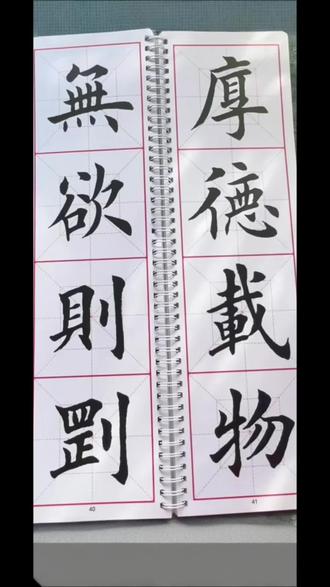 無欲則剛
40
厚徳載物
41